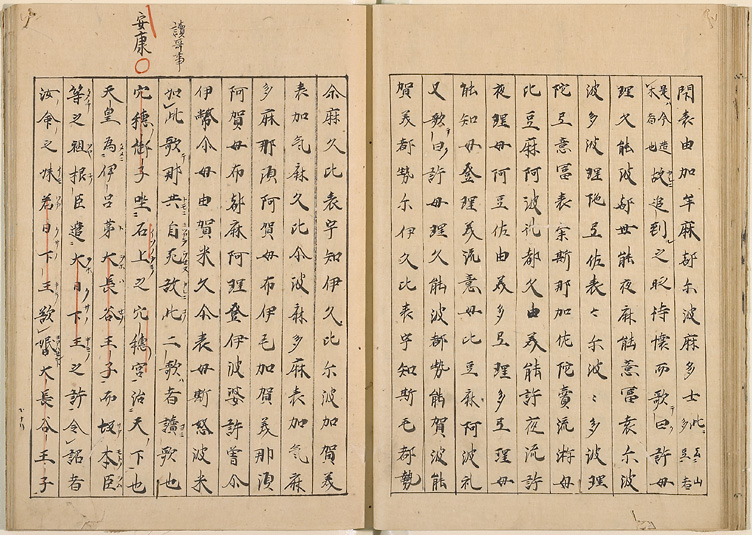 閇袁由加牟麻都尓波麻多士 此云山多豆者
是今造木者也 故追到之時待懷而歌曰許母
理久能波都世能夜麻能意冨袁尓波
波多波理陁弖佐袁〻尓波〻多波理
陁弖意冨袁余斯那加佐陁賣流淤母
比豆麻阿波礼都久由美能許夜流許
夜理母阿豆佐由美多弖理多弖理母
能知母登理美流意母比豆麻阿波礼
又歌曰許母理久能波都勢能賀波能
賀美都勢尓伊久比袁宇知斯毛都勢
讀哥事
安康
尓麻久比袁宇知伊久比尓波加賀美
袁加氣麻久比尓波麻多麻袁加氣麻
多麻那須阿賀母布伊毛加賀美那須
阿賀母布都麻阿理登伊波婆許曾尓
伊幣尓母由賀米久尓袁母斯怒波米
如此歌即共自死故此二歌者讀歌也
穴穗御子坐石上之穴穗宮治天下也
天皇為伊呂弟大長谷王子而坂本臣
等之祖根臣遣大日下王之許令詔者
汝命之妹若日下王欲婚大長谷王子